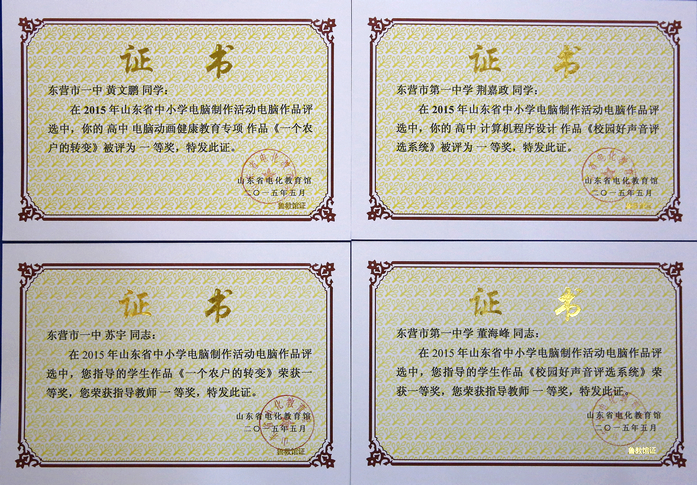 证 书
东营市一中 黄文鹏 同学：
在 2015 年山东省中小学电脑制作活动电脑作品评
选中，你的 高中 电脑动画健康教育专项 作品《一个农
户的转变》被评为 一 等奖，特发此证。
山东省电化教育馆
二〇一五年五月
鲁教馆证
证 书
东营市第一中学 荆嘉政 同学：
在 2015 年山东省中小学电脑制作活动电脑作品评
选中，你的 高中 计算机程序设计 作品《校园好声音评
选系统》被评为 一 等奖，特发此证。
山东省电化教育馆
二〇一五年五月
证 书
东营市一中 苏宇 同志：
在 2015 年山东省中小学电脑制作活动电脑作品评
选中，您指导的学生作品《一个农户的转变》荣获一
等奖，您荣获指导教师 一 等奖，特发此证。
山东省电化教育馆
二〇一五年五月
鲁教馆证
证 书
东营市第一中学 董海峰 同志：
在 2015 年山东省中小学电脑制作活动电脑作品评
选中，您指导的学生作品《校园好声音评选系统》荣
获一等奖，您荣获指导教师 一 等奖，特发此证。
山东省电化教育馆
二〇一五年五月
鲁教馆证